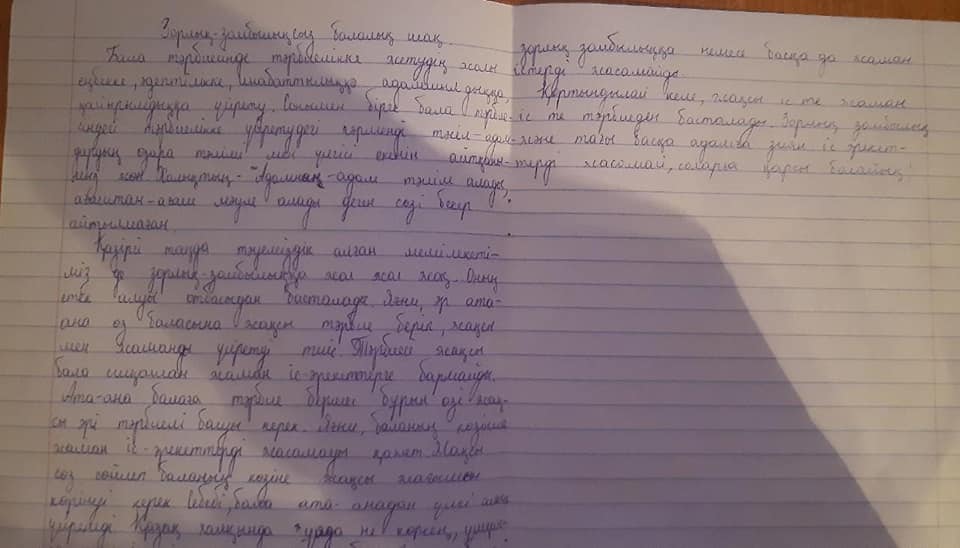 Зорлық-зомбылықсыз балалық шақ.
Бала тәрбиесінде тәрбиелікке жетудің жолы
еңбекке, әдептілікке, инабаттылыққа адамшылдыққа,
қайырымдылыққа үйрету. Сонымен бірге бала
тәрбиелікке үйретудегі пәрменді тәсіл-адам-
дардың өзара тәлімі мен үлгісі екенін айтқан-
жөн Халықтың- "Адамнаң-адам тәлім алады,
ағаштан-ағаш мәуе алады деген сөзі бекер
айтылмаған.
Қазіргі таңда тәуелсіздік алған мемлмкеті-
міз де зорлық-зомбылыққа жол жол жоқ. Оның
алуы отбасыдан басталады. Яғни, әр ата-
ана өз баласына жақсы тәрбие беріп, жақсы
мен жаманды үйретуі тиіс. Тәрбиесі жақсы
бала ешқашан жаман іс-әрекеттерге бармайды.
Ата-ана балаға тәрбие бермес бұрын өзі жақ-
сы әрі тәрбиелі болуы керек. Яғни, баланың көзінше
жаман іс-әрекеттерді жасамауы қажет. Жақсы
сөз сөйлеп баланың көзіне жақсы жағымен
көрінуі керек Себебі, бала ата-анадан үлгі алып
үйренеді Қазақ халқында "ұяда не көрсең, ұшқан-
зорлық зомбылыққа немесе басқа да жаман
істерді жасамайды.
Қортындылай келе, жақсы іс те жаман
іс те тәрбиеден басталады. Зорлық зомбылық
және тағы басқа адамға зиян іс әрекет-
терді жасамай, соларға қарсы болайық